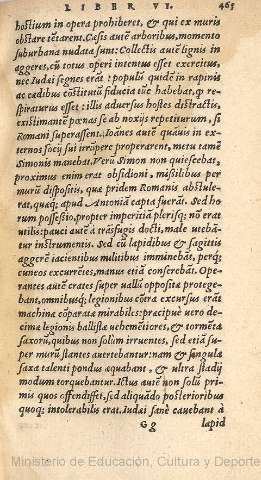 LIBER VI. 465
hostium in opera prohiberet, & qui ex muris
obstare tētarent. Cæsis autē arboribus, momento
suburbana nudata sunt: Collectis autē lignis in
aggeres, cū totus operi intentus esset exercitus,
nec Iudæi segnes erāt: populū quidē in rapinis
ac cædibus cōstitutū fiducia tūc habebat, qð re-
spiraturus esset: illis aduersus hostes distractis,
existimantē pœnas se ab noxijs repetiturum, si
Romani superassent. Ioānes autē quāuis in ex-
ternos socij sui irrūpere properarent, metu tamē
Simonis manebat. Verū Simon non quiescebat,
proximus enim erat obsidioni, missilibus per
murū dispositis, quæ pridem Romanis abstule-
rat, quæq; apud Antoniā capta fuerāt. Sed ho-
rum possessio, propter imperitiā plerisq; nō erat
utilis: pauci autē à trāsfugis docti, male utebā-
tur instrumentis. Sed cū lapidibus & sagittis
aggerē iacientibus militibus imminebāt, perq;
cuneos excurrētes, manus etiā conserebāt. Ope-
rantes autē crates super uallū oppositæ protege-
bant, omnibusq; legionibus cōtra excursus erāt
machinæ cōparatæ mirabiles: præcipuè uero de-
cimæ legionis ballistæ uehemētiores, & tormēta
saxorū, quibus non solum irruentes, sed etiā su-
per murū stantes auertebantur: nam & singula
saxa talenti pondus æquabant, & ultra stadij
modum torquebantur. Ictus autē non solū pri-
mis quos offendisset, sed aliquādo posterioribus
quoq; intolerabilis erat. Iudæi sanè cauebant à
Gg lapid
Ministerio de Educación, Cultura y Deporte